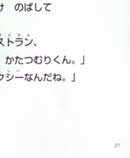 け のばして
ストラン、
かたつむりくん。」
クシーなんだね。」